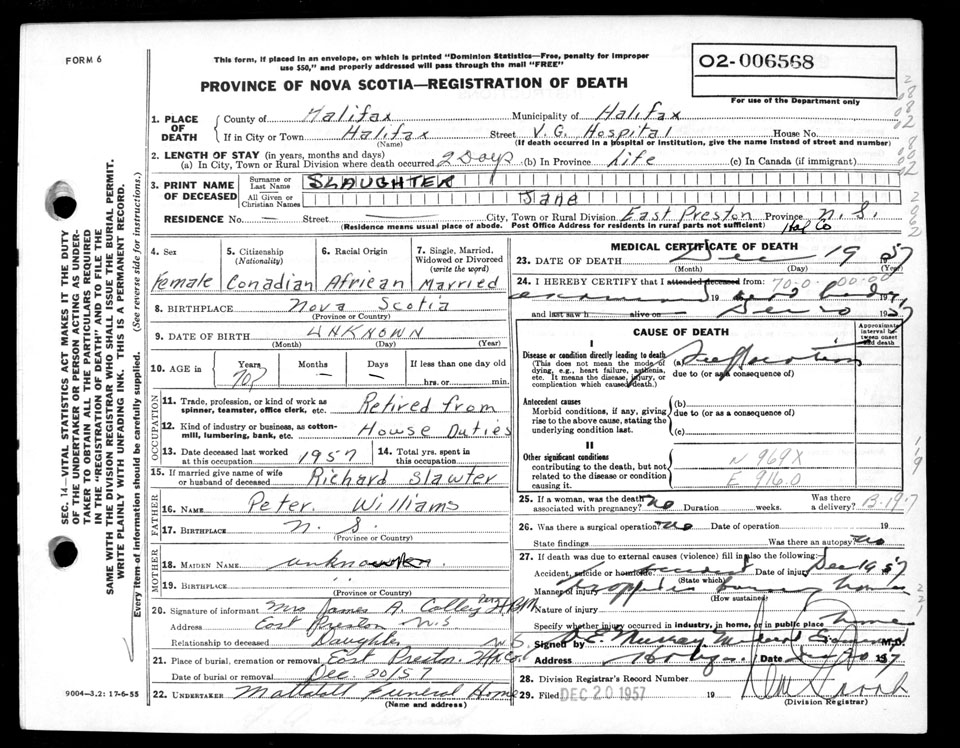 FORM 6
This form, if placed in an envelope, on which is printed "Dominion Statistics—Free, penalty for improper
use $50," and properly addressed will pass through the mail "FREE"
PROVINCE OF NOVA SCOTIA—REGISTRATION OF DEATH
02-006568
For use of the Department only
SEC. 14—VITAL STATISTICS ACT MAKES IT THE DUTY
OF THE UNDERTAKER OR PERSON ACTING AS UNDER-
TAKER TO OBTAIN ALL THE PARTICULARS REQUIRED
IN THE "REGISTRATION OF DEATH" AND TO FILE THE
SAME WITH THE DIVISION REGISTRAR WHO SHALL ISSUE THE BURIAL PERMIT.
WRITE PLAINLY WITH UNFADING INK. THIS IS A PERMANENT RECORD.
Every item of information should be carefully supplied. (See reverse side for instructions.)
1. PLACE OF DEATH
County of Halifax Municipality of Halifax
If in City or Town Halifax Street V.G. Hospital House No.
(Name) (If death occurred in a hospital or institution, give the name instead of street and number)
2. LENGTH OF STAY (in years, months and days)
(a) In City, Town or Rural Division where death occurred 2 Days (b) In Province Life (c) In Canada (if immigrant)
3. PRINT NAME OF DECEASED
Surname or Last Name SLAUGHTER
All Given or Christian Names Jane
RESIDENCE No. — Street — City, Town or Rural Division East Preston Province N.S.
(Residence means usual place of abode. Post Office Address for residents in rural parts not sufficient) Hal Co
4. Sex Female
5. Citizenship (Nationality) Canadian
6. Racial Origin African
7. Single, Married, Widowed or Divorced (write the word) Married
8. BIRTHPLACE Nova Scotia
(Province or Country)
9. DATE OF BIRTH UNKNOWN
(Month) (Day) (Year)
10. AGE in Years 70 Months — Days — If less than one day old hrs. or min.
OCCUPATION
11. Trade, profession, or kind of work as spinner, teamster, office clerk, etc. Retired from
12. Kind of industry or business, as cotton-mill, lumbering, bank, etc. House Duties
13. Date deceased last worked at this occupation 1957 14. Total yrs. spent in this occupation
15. If married give name of wife or husband of deceased Richard Slawter
FATHER
16. NAME Peter Williams
17. BIRTHPLACE N.S.
(Province or Country)
MOTHER
18. MAIDEN NAME unknown
19. BIRTHPLACE " "
(Province or Country)
20. Signature of informant Mrs James A. Colley
Address East Preston N.S
Relationship to deceased Daughter
21. Place of burial, cremation or removal East Preston Hfx Co. N.S.
Date of burial or removal Dec. 20/57
22. UNDERTAKER Mattatall Funeral Home
(Name and address)
9004—3.2: 17-6-55
MEDICAL CERTIFICATE OF DEATH
23. DATE OF DEATH Dec 19 1957
(Month) (Day) (Year)
24. I HEREBY CERTIFY that I attended deceased from: 70-0 00-00
19 1957
and last saw h alive on 1957
CAUSE OF DEATH
Approximate interval between onset and death
I
Disease or condition directly leading to death (a) Suffocation
(This does not mean the mode of dying, e.g., heart failure, asthenia, etc. It means the disease, injury, or complication which caused death.)
due to (or as a consequence of)
Antecedent causes (b)
Morbid conditions, if any, giving rise to the above cause, stating the underlying condition last.
due to (or as a consequence of)
(c)
II
Other significant conditions
contributing to the death, but not related to the disease or condition causing it.
N 969X
E 916.0
25. If a woman, was the death associated with pregnancy? no Duration weeks. Was there a delivery? B-197
26. Was there a surgical operation? no Date of operation 19
State findings Was there an autopsy? no
27. If death was due to external causes (violence) fill in also the following:
Accident, suicide or homicide accident Date of injury Dec 19 1957
(State which)
Manner of injury Trapped in burning home
(How sustained)
Nature of injury
Specify whether injury occurred in industry, in home, or in public place home
Signed by D.E. Murray M.D.
Address Date 1957
28. Division Registrar's Record Number
29. Filed DEC 20 1957 19
(Division Registrar)